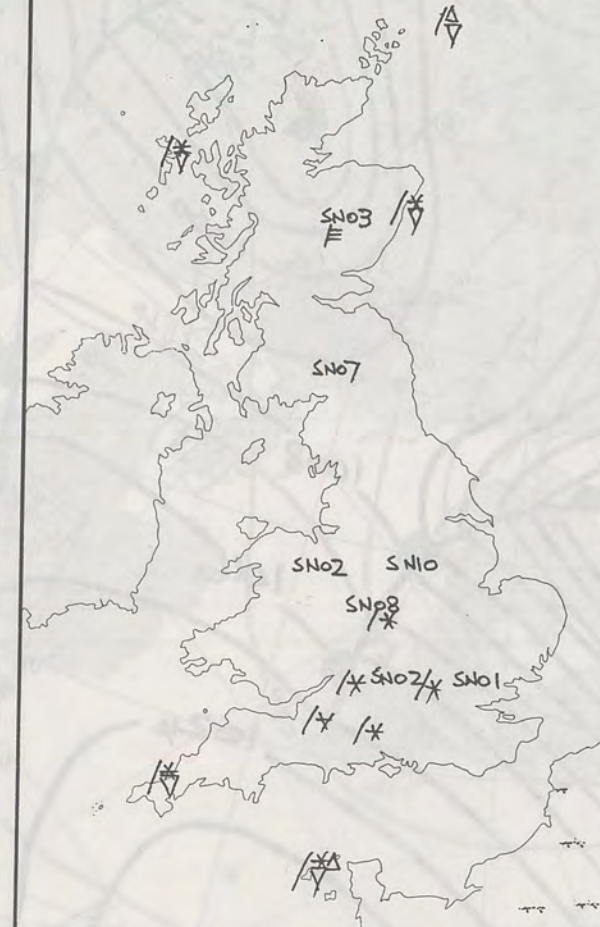 SN03
SN07
SN02 SN10
SN08
SN02 SN01